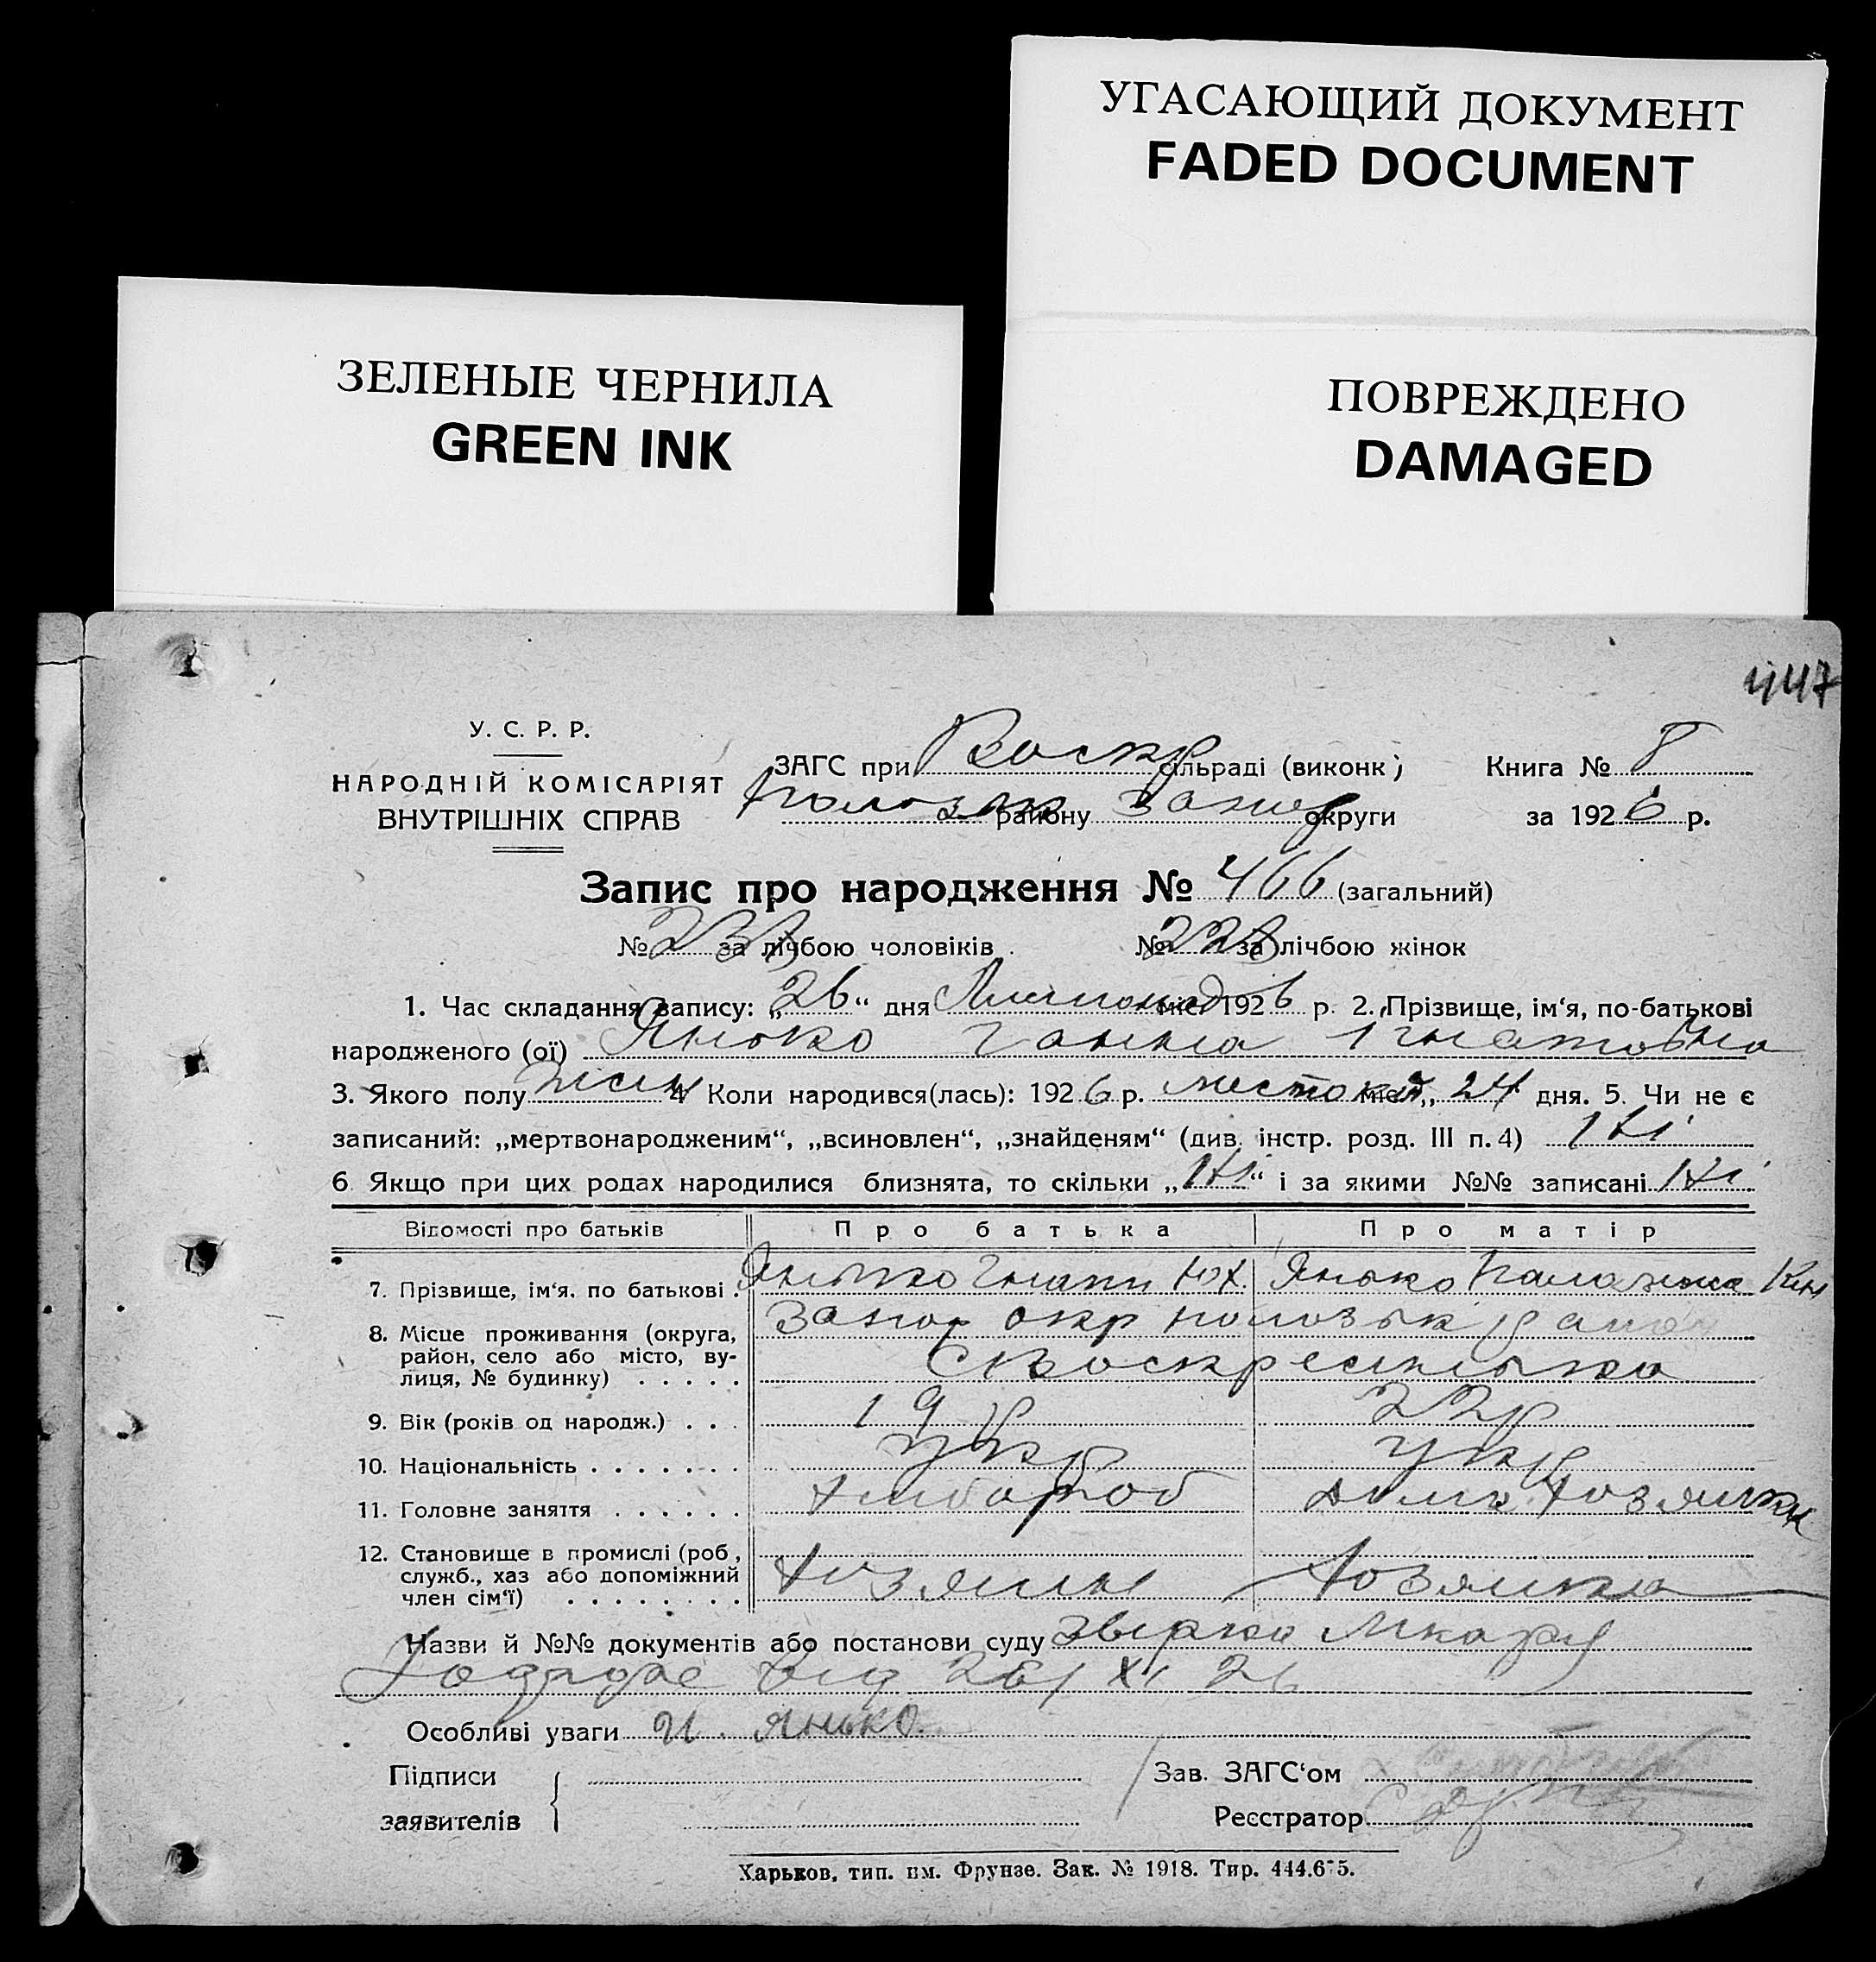 УГАСАЮЩИЙ ДОКУМЕНТ
FADED DOCUMENT
ЗЕЛЕНЫЕ ЧЕРНИЛА
GREEN INK
ПОВРЕЖДЕНО
DAMAGED
447
У. С. Р. Р.
НАРОДНІЙ КОМІСАРІЯТ
ВНУТРІШНІХ СПРАВ
ЗАГС при Воскр сільраді (виконк.) Книга № 8
району Запор округи за 1926 р.
Запис про народження № 466 (загальний)
№ за лічбою чоловіків № за лічбою жінок
1. Час складання запису: „26“ дня Листопад міс. 1926 р. 2. Прізвище, ім'я, по-батькові
народженого (ої) Янько Ганна Ігнатовна
3. Якого полу жін 4 Коли народився(лась): 1926 р. міс. „24 дня. 5. Чи не є
записаний: „мертвонародженим“, „всиновлен“, „знайденям“ (див. інстр. розд. III п. 4) Ні
6 Якщо при цих родах народилися близнята, то скільки „Ні“ і за якими №№ записані Ні
Відомості про батьків Про батька Про матір
7. Прізвище, ім'я. по батькові. Янько Гнат Юх. Янько Палажка
8. Місце проживання (округа, район, село або місто, вулиця, № будинку) Запор окр
С Воскресенька
9. Вік (років од народж.) 19 р 22 р
10. Національність укр укр
11. Головне заняття хлібороб дома хозяйка
12. Становище в промислі (роб, служб., хаз або допоміжний член сім'ї) хозяин хозяйка
Назви й №№ документів або постанови суду
від 26/XI 26
Особливі уваги И. Янько.
Підписи
заявителів
Зав. ЗАГС'ом
Реєстратор
Харьков, тип. им. Фрунзе. Зак. № 1918. Тир. 444.675.